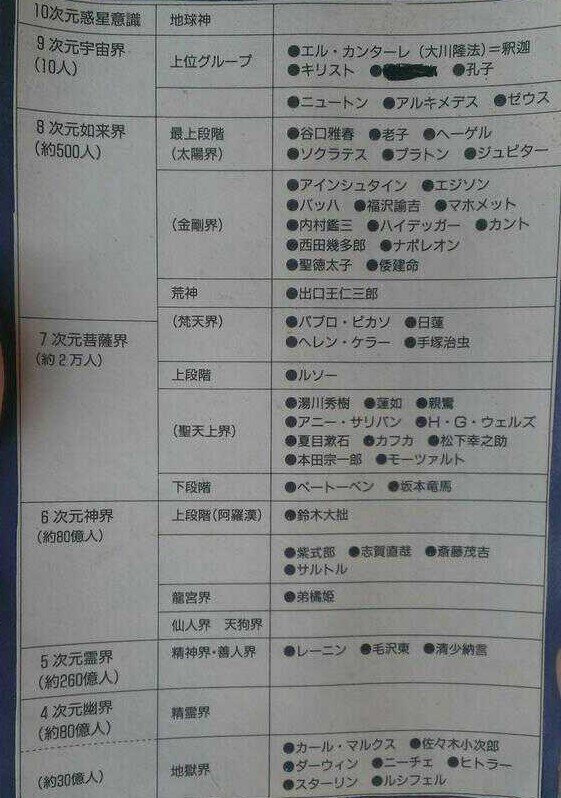 10次元惑星意識 地球神
9次元宇宙界 上位グループ ●エル・カンターレ（大川隆法）=釈迦
(10人) ●キリスト ● ●孔子
●ニュートン ●アルキメデス ●ゼウス
8次元如来界 最上段階 ●谷口雅春 ●老子 ●ヘーゲル
(約500人) (太陽界) ●ソクラテス ●プラトン ●ジュピター
●アインシュタイン ●エジソン
●バッハ ●福沢諭吉 ●マホメット
(金剛界) ●内村鑑三 ●ハイデッガー ●カント
●西田幾多郎 ●ナポレオン
●聖徳太子 ●倭建命
荒神 ●出口王仁三郎
7次元菩薩界 (梵天界) ●パブロ・ピカソ ●日蓮
(約2万人) ●ヘレン・ケラー ●手塚治虫
上段階 ●ルソー
●湯川秀樹 ●蓮如 ●親鸞
(聖天上界) ●アニー・サリバン ●H・G・ウェルズ
●夏目漱石 ●カフカ ●松下幸之助
●本田宗一郎 ●モーツァルト
下段階 ●ベートーベン ●坂本竜馬
6次元神界 上段階(阿羅漢) ●鈴木大拙
(約80億人) ●紫式部 ●志賀直哉 ●斎藤茂吉
●サルトル
龍宮界 ●弟橘姫
仙人界 天狗界
5次元霊界 精神界・善人界 ●レーニン ●毛沢東 ●清少納言
(約260億人)
4次元幽界 精霊界
(約80億人)
●カール・マルクス ●佐々木小次郎
(約30億人) 地獄界 ●ダーウィン ●ニーチェ ●ヒトラー
●スターリン ●ルシフェル